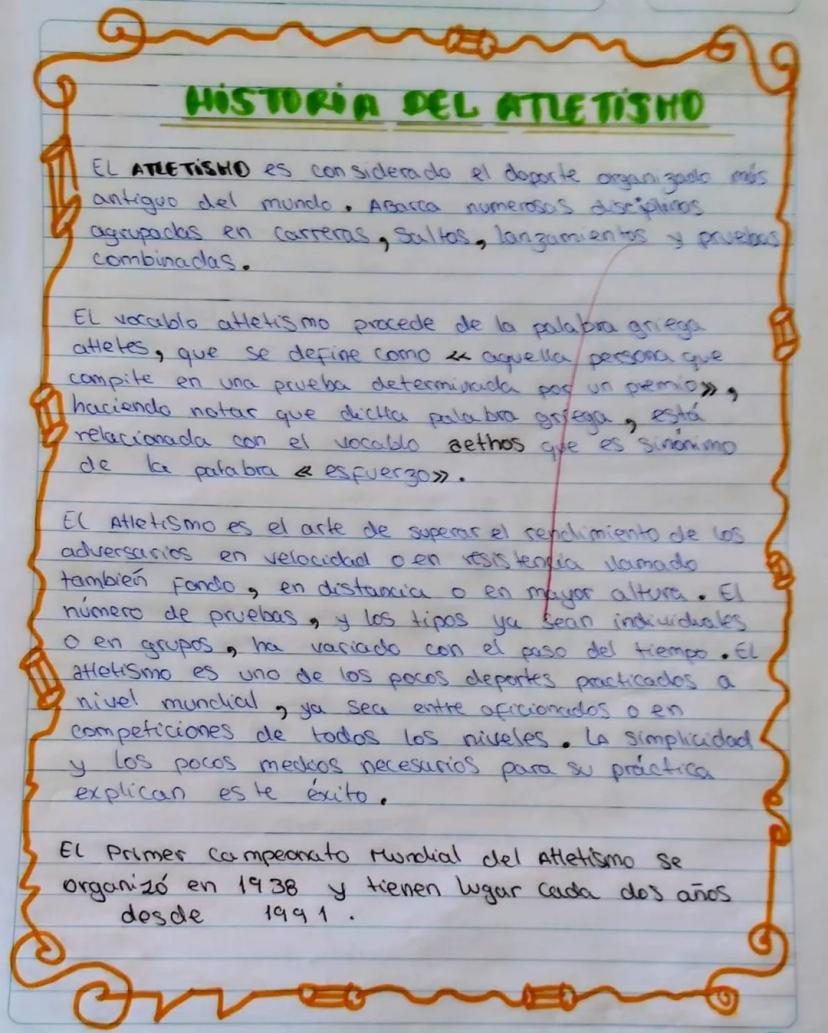 HISTORIA DEL ATLETISMO
EL ATLETISMO es considerado el deporte organizado más
antiguo del mundo. Abarca numerosas disciplinas
agrupadas en carreras, saltos, lanzamientos y pruebas
combinadas.
EL vocablo atletismo procede de la palabra griega
atletes, que se define como « aquella persona que
compite en una prueba determinada por un premio»,
haciendo notar que dicha palabra griega, está
relacionada con el vocablo aethos que es sinónimo
de la palabra « esfuerzo».
El Atletismo es el arte de superar el rendimiento de los
adversarios en velocidad o en resistencia llamado
también Fondo, en distancia o en mayor altura. El
número de pruebas, y los tipos ya sean individuales
o en grupos, ha variado con el paso del tiempo. EL
atletismo es uno de los pocos deportes practicados a
nivel mundial, ya sea entre aficionados o en
competiciones de todos los niveles. LA simplicidad
y los pocos medios necesarios para su práctica
explican este éxito.
El Primer Campeonato Mundial del Atletismo se
organizó en 1938 y tienen lugar cada dos años
desde 1991.